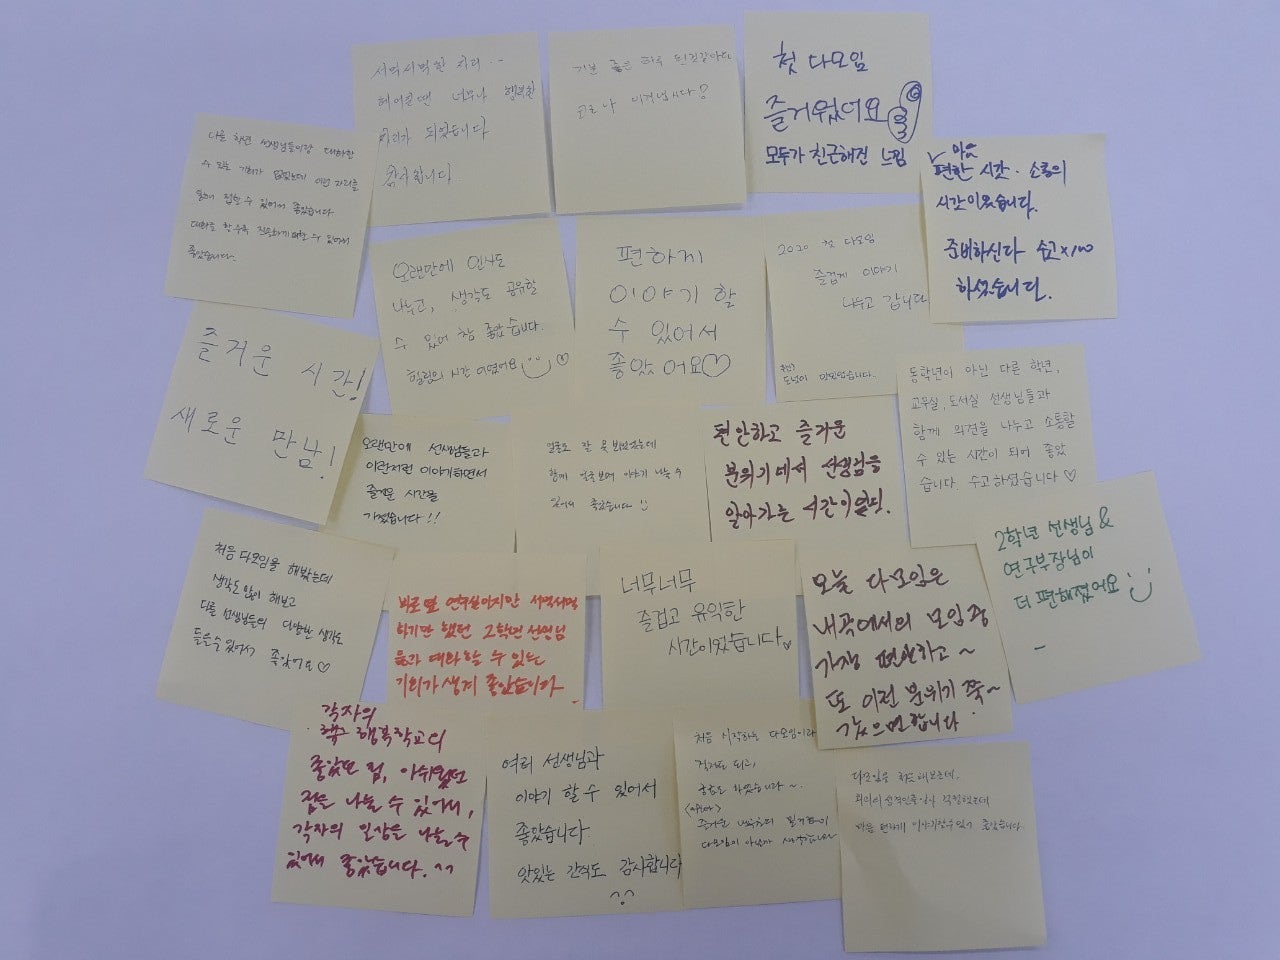 서먹서먹한 자리..
헤어질땐 너무나 행복한
자리가 되었습니다
감사합니다.
기분 좋은 하루 된것같아다
코로나 이겨냅시다?
첫 다모임
즐거웠어요
모두가 친근해진 느낌
다른 학년 선생님들이랑 대화할
수 있는 기회가 없었는데 이런 자리를
통해 접할 수 있어서 좋았습니다.
대화로 할수록 수 있어서
좋았습니다.
마음
편한 시간. 소통의
시간이었습니다.
준비하신다 수고x100
하셨습니다.
오랜만에 인사도
나누고, 생각도 공유할
수 있어 참 좋았습니다.
힐링의 시간이었어요
편하게
이야기 할
수 있어서
좋았어요♡
2020 첫 다모임
즐겁게 이야기
나누고 갑니다
즐거운 시간!
새로운 만남!
동학년이 아닌 다른 학년,
교무실, 도서실 선생님들과
함께 의견을 나누고 소통할
수 있는 시간이 되어 좋았
습니다. 수고하셨습니다♡
오랜만에 선생님들과
이런저런 이야기하면서
즐거운 시간을
가졌습니다!!
얼굴도 잘 못 보았었는데
함께 얼굴보며 이야기 나눌 수
있어서 좋았습니다
편안하고 즐거운
분위기에서 선생님을
알아가는 시간이었다.
처음 다모임을 해봤는데
생각도 많이 해보고
다른 선생님들의 다양한 생각도
들을수 있어서 좋았어요♡
바로 옆 연구실이지만 서먹서먹
하기만 했던 2학년 선생님
들과 대화할 수 있는
기회가 생겨 좋았습니다.
너무너무
즐겁고 유익한
시간이었습니다♡
오늘 다모임은
내곡에서의 모임 중
가장 편안하고~
또 이런 분위기 쭉~
갔으면 합니다
2학년 선생님 &
연구부장님이
더 편해졌어요
각자의
행복학교의
좋았던 점, 아쉬웠던
점을 나눌 수 있어서,
각자의 일상을 나눌 수
있어서 좋았습니다. ^^
여러 선생님과
이야기 할 수 있어서
좋았습니다.
맛있는 간식도 감사합니다
^^
처음 시작하는 다모임이라
걱정도 되고,
다모임을 처음 해보는데,
걱정했는데
마음 편하게 이야기할수있어 좋았습니다